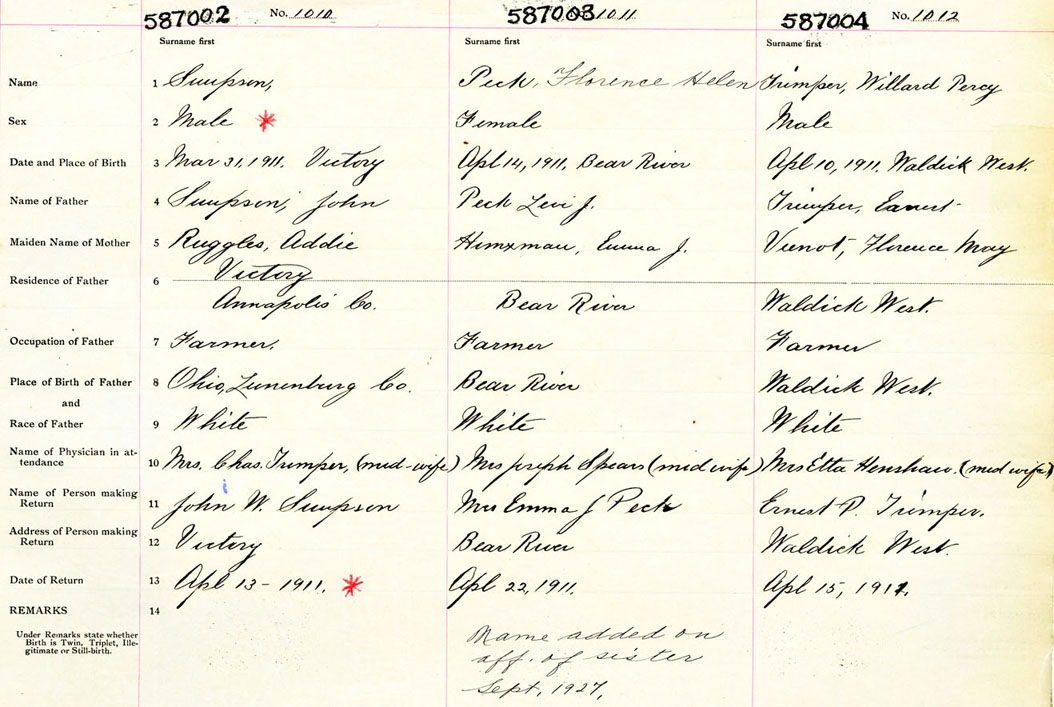 587002 No. 1010 587003 1011 587004 No. 1012
Surname first Surname first Surname first
Name 1 Simpson, Peck, Florence Helen Trimper, Willard Percy
Sex 2 Male * Female Male
Date and Place of Birth 3 Mar 31, 1911. Victory Apl 14, 1911, Bear River Apl 10, 1911. Waldick West.
Name of Father 4 Simpson, John Peck Levi J. Trimper, Earnest
Maiden Name of Mother 5 Ruggles, Addie Emma J. Vienot, Florence May
Victory
Residence of Father 6
Annapolis Co. Bear River Waldick West.
Occupation of Father 7 Farmer. Farmer Farmer
Place of Birth of Father 8 Ohio, Lunenburg Co. Bear River Waldick West.
and
Race of Father 9 White White White
Name of Physician in at-
tendance 10 Mrs. Chas. Trimper, (mid-wife) Mrs Joseph Spears (mid wife) Mrs Etta Henshaw. (mid wife)
Name of Person making
Return 11 John W. Simpson Mrs Emma J Peck Ernest P. Trimper.
Address of Person making
Return 12 Victory Bear River Waldick West.
Date of Return 13 Apl 13 - 1911. * Apl 22, 1911. Apl 15, 1911.
REMARKS 14
Under Remarks state whether
Birth is Twin, Triplet, Ille-
gitimate or Still-birth.
Name added on
aff. of sister
Sept, 1927,